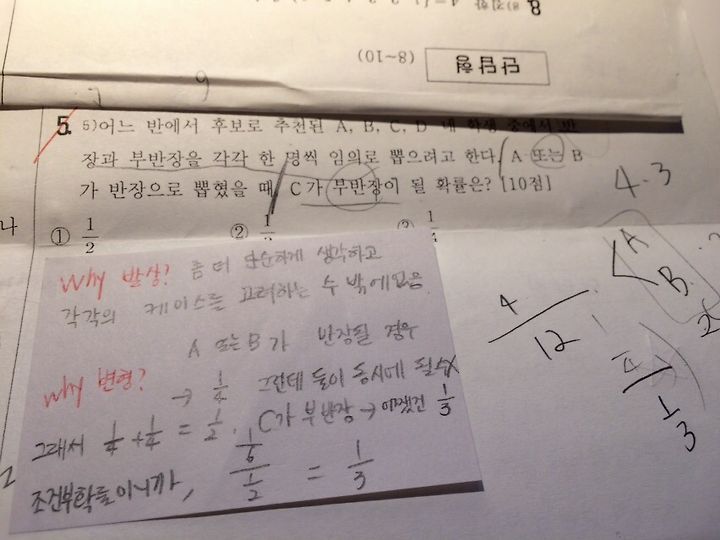 8.
(8~10)
단답형
9
5. 5)어느 반에서 후보로 추천된 A, B, C, D 네 학생 중에서 반
장과 부반장을 각각 한 명씩 임의로 뽑으려고 한다. A 또는 B
가 반장으로 뽑혔을 때, C가 부반장이 될 확률은? [10점]
나
① 1/2 ② 1/ ③ 1/
4·3
A
B
4/12
1/3
Why 발상? 좀 더 단순하게 생각하고
각각의 케이스를 고려하는 수 밖에 없음
A 또는 B가 반장될 경우
Why 변형? → 1/4 그런데 둘이 동시에 될 수 X
그래서 1/4 + 1/4 = 1/2. C가 부반장 → 어쨌건 1/3
조건부확률이니까, 1/6 / 1/2 = 1/3